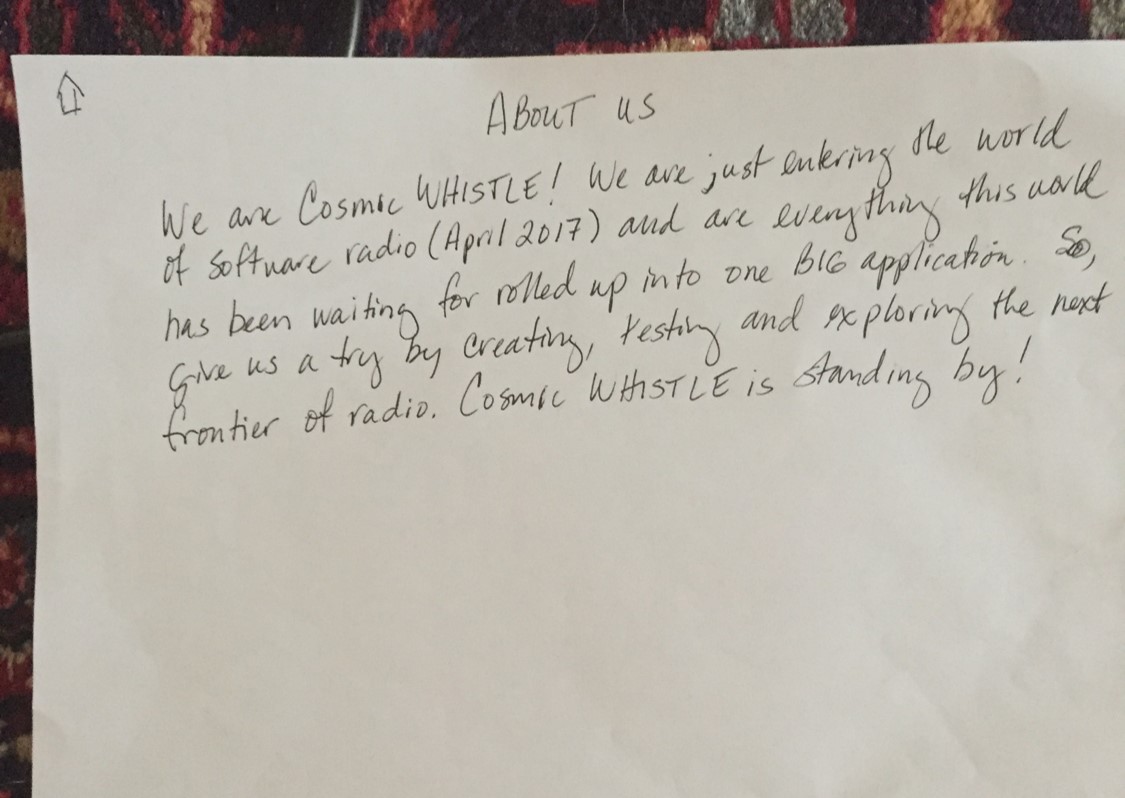 ABOUT US
We are Cosmic WHISTLE! We are just entering the world
of software radio (April 2017) and are everything this world
has been waiting for rolled up into one BIG application. So,
give us a try by creating, testing and exploring the next
frontier of radio. Cosmic WHISTLE is standing by!